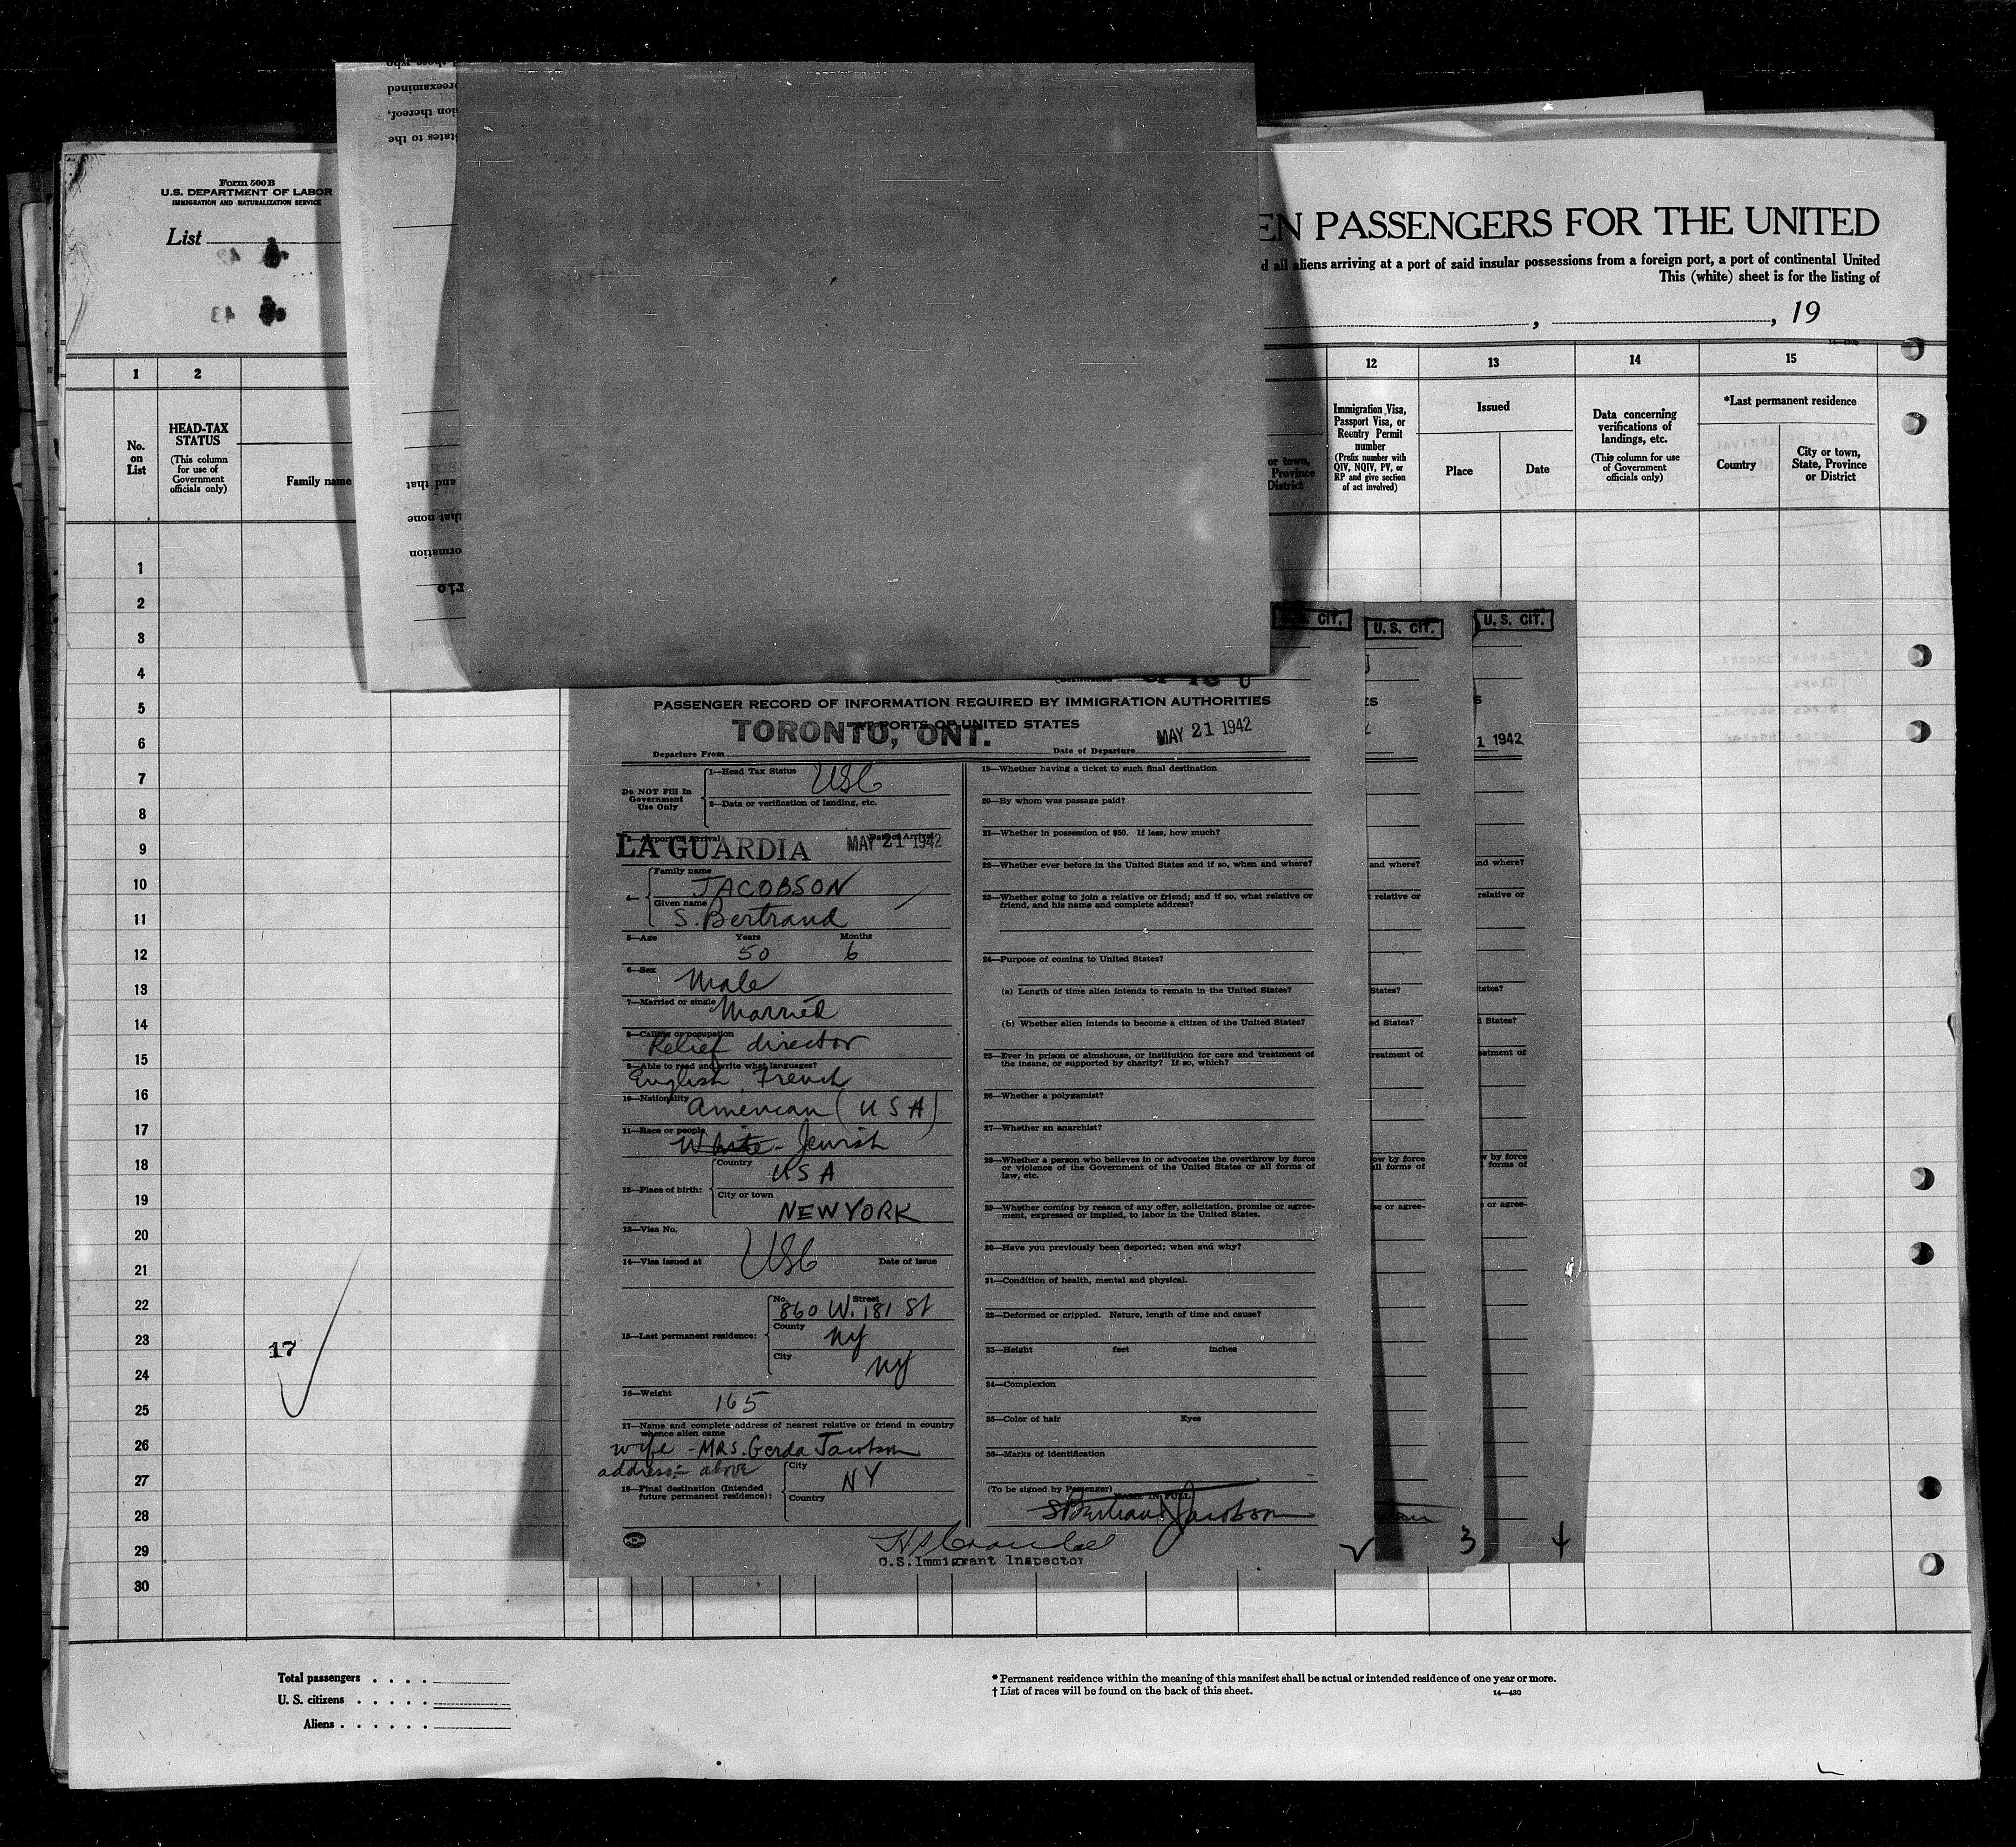 Form 500 B
U.S. DEPARTMENT OF LABOR
IMMIGRATION AND NATURALIZATION SERVICE
List
preexamined
ion thereof,
States to the
and that
that none
ormation
EN PASSENGERS FOR THE UNITED
d all aliens arriving at a port of said insular possessions from a foreign port, a port of continental United
This (white) sheet is for the listing of
, , 19
1 2 12 13 14 15
No. on List
HEAD-TAX STATUS
(This column for use of Government officials only)
Family name
or town, Province District
Immigration Visa, Passport Visa, or Reentry Permit number
(Prefix number with QIV, NQIV, PV, or RP and give section of act involved)
Issued
Place Date
Data concerning verifications of landings, etc.
(This column for use of Government officials only)
*Last permanent residence
Country
City or town, State, Province or District
1
2
3
4
5
6
7
8
9
10
11
12
13
14
15
16
17
18
19
20
21
22
23
24
25
26
27
28
29
30
17
U. S. CIT.
U. S. CIT.
PASSENGER RECORD OF INFORMATION REQUIRED BY IMMIGRATION AUTHORITIES
AT PORTS OF UNITED STATES
TORONTO, ONT.
MAY 21 1942
Departure From
Date of Departure
Do NOT Fill In
Government
Use Only
1—Head Tax Status USC
2—Data or verification of landing, etc.
3—Airport of Arrival Date of Arrival
LA GUARDIA MAY 21 1942
4—
Family name
JACOBSON
Given name
S. Bertrand
5—Age Years Months
50 6
6—Sex
Male
7—Married or single
Married
8—Calling or occupation
Relief director
9—Able to read and write what languages?
English, French
10—Nationality
American (USA)
11—Race or people
White - Jewish
12—Place of birth:
Country
USA
City or town
NEW YORK
13—Visa No.
14—Visa issued at USC Date of issue
15—Last permanent residence:
No. Street
860 W. 181 St
County
NY
City
NY
16—Weight
165
17—Name and complete address of nearest relative or friend in country
whence alien came
wife - MRS. Gerda Jacobson
address:- above
18—Final destination (Intended
future permanent residence):
City
NY
Country
19—Whether having a ticket to such final destination
20—By whom was passage paid?
21—Whether in possession of $50. If less, how much?
22—Whether ever before in the United States and if so, when and where?
23—Whether going to join a relative or friend; and if so, what relative or
friend, and his name and complete address?
24—Purpose of coming to United States?
(a) Length of time alien intends to remain in the United States?
(b) Whether alien intends to become a citizen of the United States?
25—Ever in prison or almshouse, or institution for care and treatment of
the insane, or supported by charity? If so, which?
26—Whether a polygamist?
27—Whether an anarchist?
28—Whether a person who believes in or advocates the overthrow by force
or violence of the Government of the United States or all forms of
law, etc.
29—Whether coming by reason of any offer, solicitation, promise or agree-
ment, expressed or implied, to labor in the United States.
30—Have you previously been deported; when and why?
31—Condition of health, mental and physical.
32—Deformed or crippled. Nature, length of time and cause?
33—Height feet inches
34—Complexion
35—Color of hair Eyes
36—Marks of identification
(To be signed by Passenger) NAME IN FULL
S Bertrand Jacobson
U.S. Immigrant Inspector
1 1942
and where?
relative or
States?
ed States?
reatment of
ow by force
all forms of
se or agree-
nd where?
relative or
tates?
d States?
eatment of
w by force
forms of
or agree-
3
Total passengers . . . .
U. S. citizens . . . . .
Aliens . . . . . .
* Permanent residence within the meaning of this manifest shall be actual or intended residence of one year or more.
† List of races will be found on the back of this sheet.
14—430